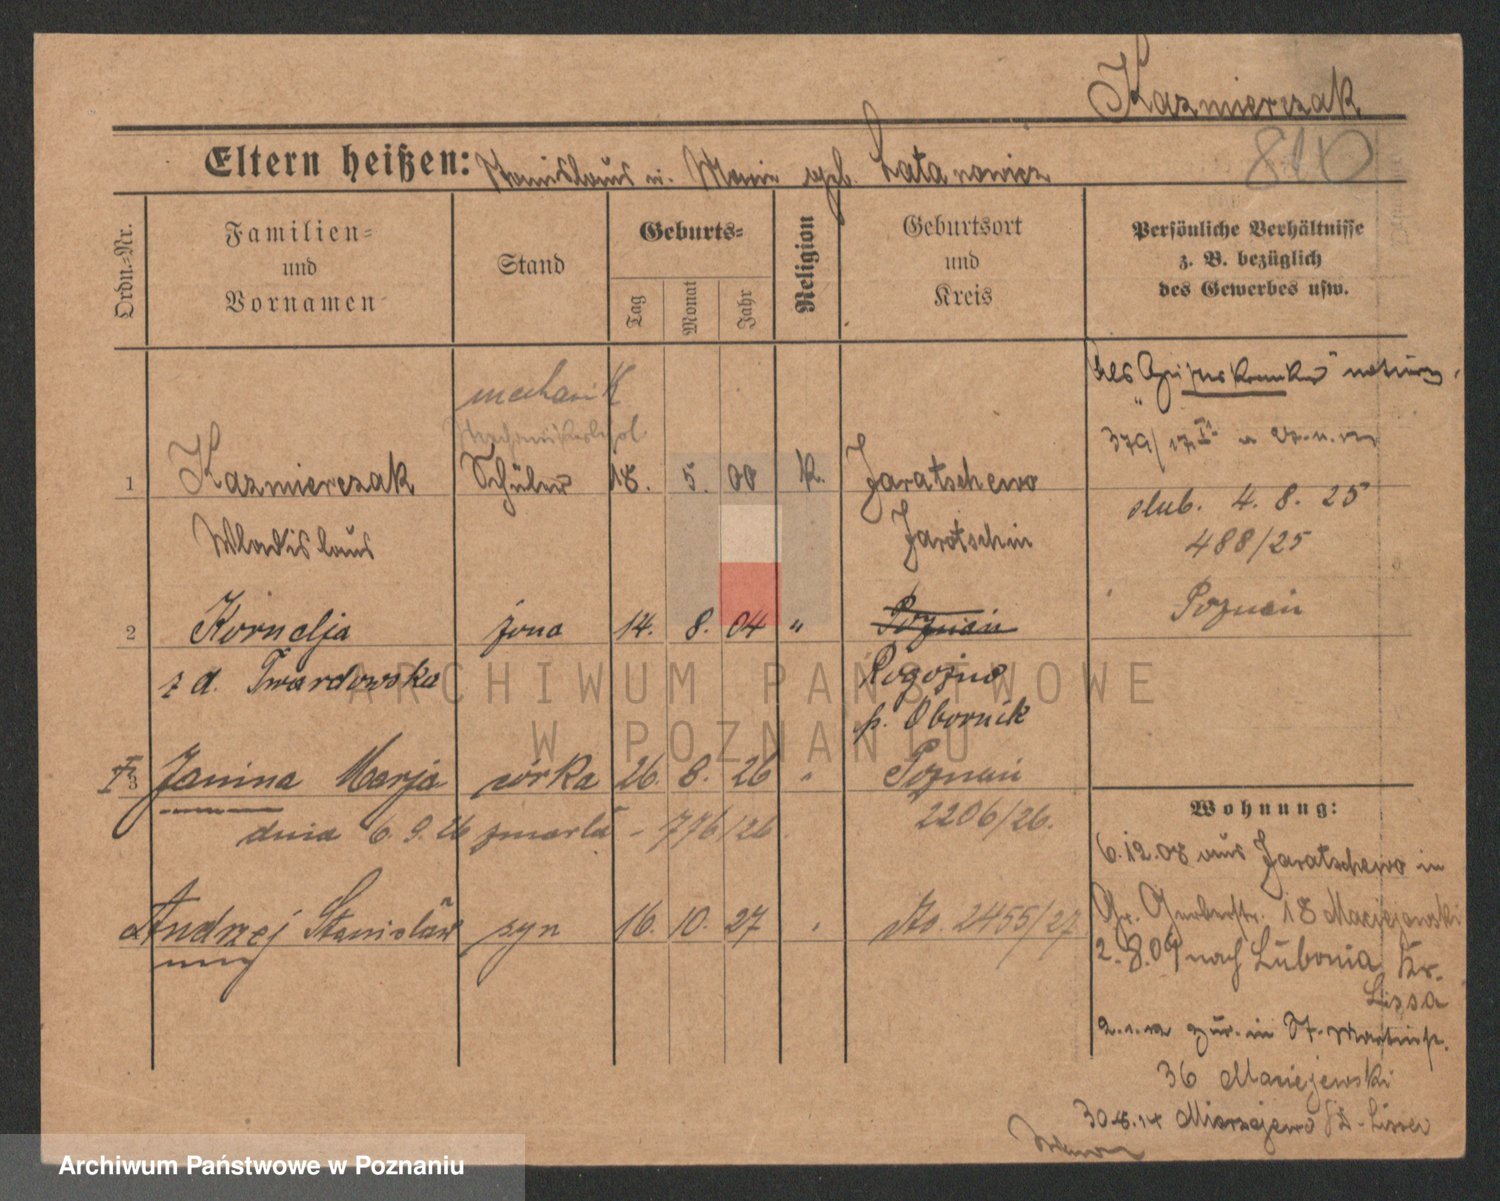 Kazmierczak
810
Eltern heißen: Stanislaus u. Marie geb. Latanowicz
Ordn.-Nr.
Familien-
und
Vornamen
Stand
Geburts-
Tag
Monat
Jahr
Religion
Geburtsort
und
Kreis
Persönliche Verhältnisse
z. B. bezüglich
des Gewerbes usw.
mechanik
1 Kazmierczak Schüler 18. 5. 00 k. Jaratschewo
Wladislaus Jarotschin
Als
379/17
slub. 4. 8. 25
488/25
Poznań
2 Kornelja żona 14. 8. 04 " Poznań
z d. Twardowska Rogoźno
p. Obornik
3 Janina Marja córka 26. 8. 26 " Poznań
dnia 6. 9. 26 zmarła - 776/26 2206/26.
Andrzej Stanisław syn 16. 10. 27 " No. 2455/27
Wohnung:
6.12.08 aus Jaratschewo in
Gr. Gerberstr. 18 Maciejewski
2. 8. 09 nach Lubonia Kr.
Lissa
zur. in St. Martinstr.
36 Maciejewski
Mierzejewo Kr. Lissa
ARCHIWUM PAŃSTWOWE
W POZNANIU
Archiwum Państwowe w Poznaniu